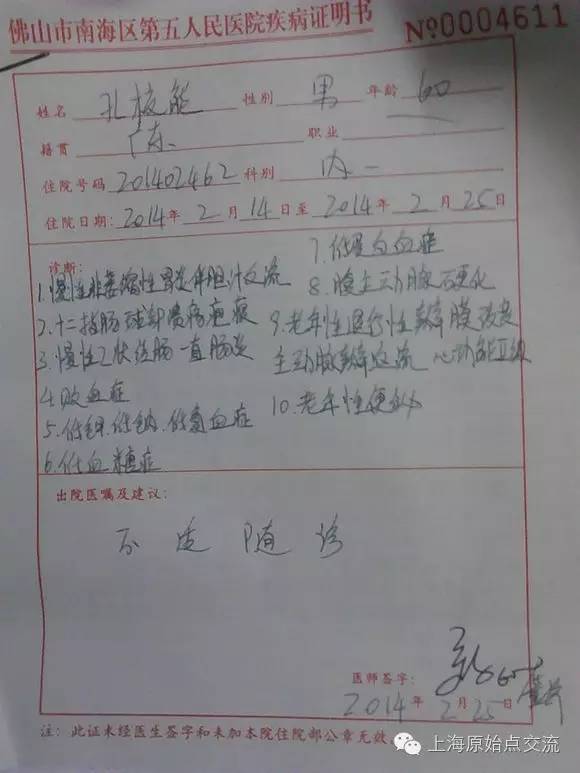 佛山市南海区第五人民医院疾病证明书
№0004611
姓名 孔 能 性别 男 年龄 60
籍贯 广东 职业
住院号码 201402462 科别 内一
住院日期: 2014 年 2 月 14 日至 2014 年 2 月 25 日
诊断:
1.慢性非萎缩性胃炎伴胆汁反流
2.十二指肠球部溃疡疤痕
3.慢性乙状结肠-直肠炎
4.败血症
5.低钾.低钠.低氯血症
6.低血糖症
7.低蛋白血症
8.腹主动脉硬化
9.老年性退行性瓣膜改变
主动脉瓣反流 心功能Ⅱ级
10.老年性便秘
出院医嘱及建议:
不适随诊
医师签字:
2014 年 2 月 25 日
注: 此证未经医生签字和未加本院住院部公章无效。
上海原始点交流